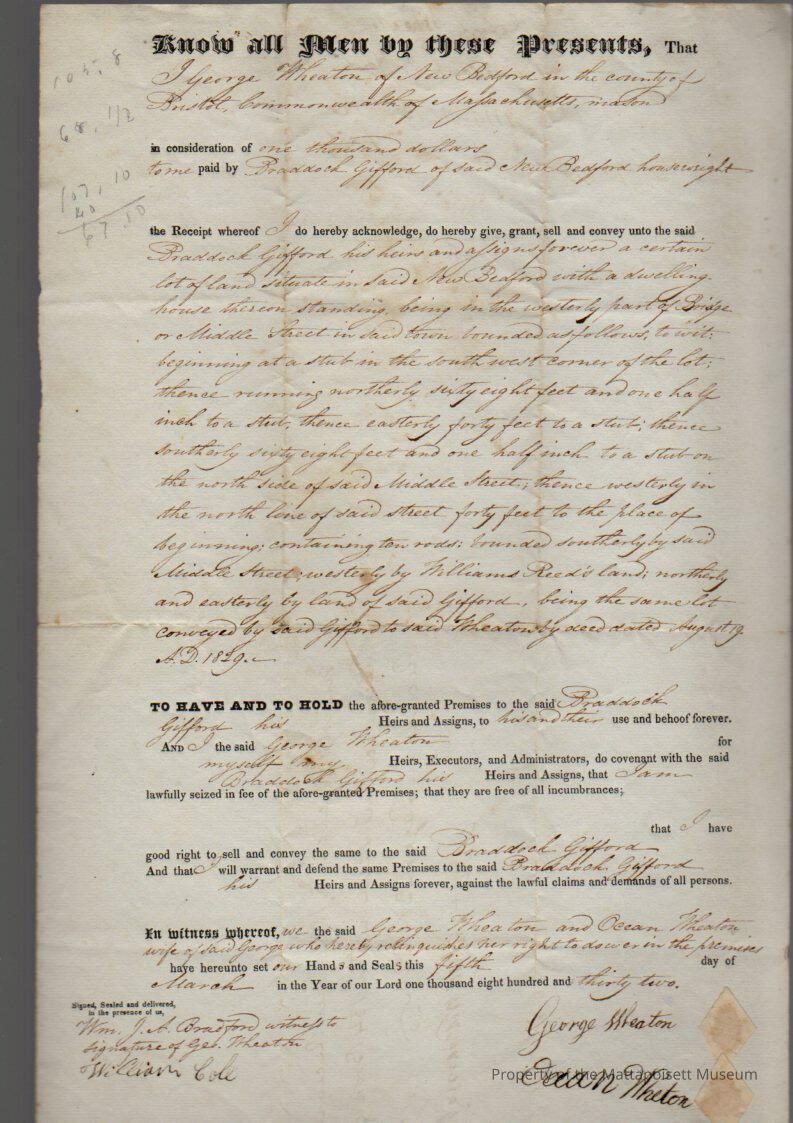 Know all Men by these Presents, That
I George Wheaton of New Bedford in the county of
Bristol, Commonwealth of Massachusetts, mason
in consideration of one thousand dollars
to me paid by Braddock Gifford of said New Bedford housewright
the Receipt whereof I do hereby acknowledge, do hereby give, grant, sell and convey unto the said
Braddock Gifford his heirs and assigns forever a certain
lot of land situate in said New Bedford with a dwelling-
house thereon standing, being in the westerly part of Bridge
or Middle Street in said town bounded as follows, to wit:
beginning at a stub in the south west corner of the lot;
thence running northerly sixty eight feet and one half
inch to a stub, thence easterly forty feet to a stub; thence
southerly sixty eight feet and one half inch to a stub on
the north side of said Middle Street; thence westerly in
the north line of said street forty feet to the place of
beginning; containing ten rods; bounded southerly by said
Middle Street; westerly by Williams Reed's land; northerly
and easterly by land of said Gifford, being the same lot
conveyed by said Gifford to said Wheaton by deed dated August 19
A.D. 1829.
TO HAVE AND TO HOLD the afore-granted Premises to the said Braddock
Gifford his Heirs and Assigns, to his and their use and behoof forever.
AND I the said George Wheaton for
myself my Heirs, Executors, and Administrators, do covenant with the said
Braddock Gifford his Heirs and Assigns, that I am
lawfully seized in fee of the afore-granted Premises; that they are free of all incumbrances;
that I have
good right to sell and convey the same to the said Braddock Gifford
And that I will warrant and defend the same Premises to the said Braddock Gifford
his Heirs and Assigns forever, against the lawful claims and demands of all persons.
In witness whereof, we the said George Wheaton and Ocean Wheaton
wife of said George who hereby relinquishes her right to dower in the premises
have hereunto set our Hands and Seals this fifth day of
March in the Year of our Lord one thousand eight hundred and thirty two.
Signed, Sealed and delivered,
in the presence of us,
Wm. J. A. Bradford witness to
signature of Geo. Wheaton
William Cole
George Wheaton
Ocean Wheton
Property of the Mattapoisett Museum
68. 1/2
107. 10
40
67 10